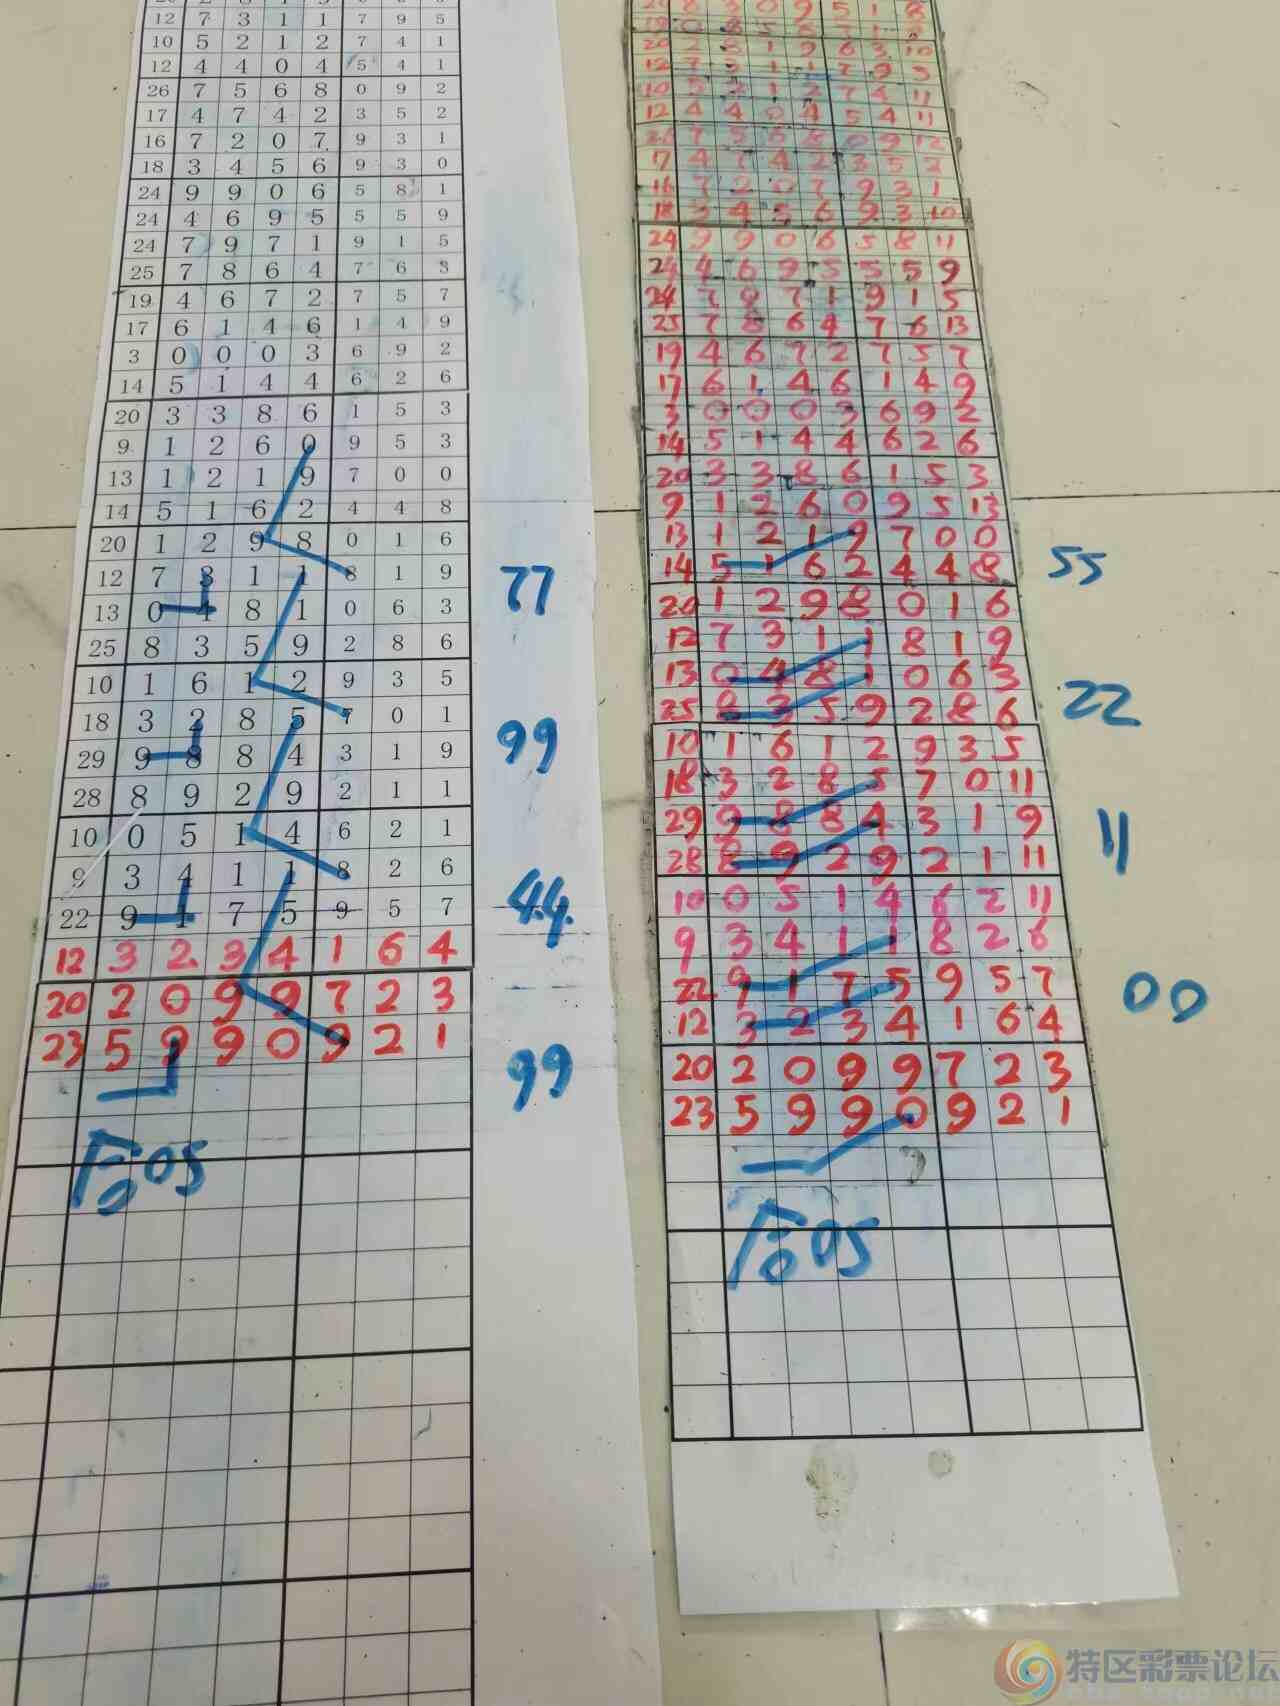 12 7 3 1 1 7 9 5
10 5 2 1 2 7 4 1
12 4 4 0 4 5 4 1
26 7 5 6 8 0 9 2
17 4 7 4 2 3 5 2
16 7 2 0 7 9 3 1
18 3 4 5 6 9 3 0
24 9 9 0 6 5 8 1
24 4 6 9 5 5 5 9
24 7 9 7 1 9 1 5
25 7 8 6 4 7 6 3
19 4 6 7 2 7 5 7
17 6 1 4 6 1 4 9
3 0 0 0 3 6 9 2
14 5 1 4 4 6 2 6
20 3 3 8 6 1 5 3
9 1 2 6 0 9 5 3
13 1 2 1 9 7 0 0
14 5 1 6 2 4 4 8
20 1 2 9 8 0 1 6
12 7 3 1 1 8 1 9
77
13 0 4 8 1 0 6 3
25 8 3 5 9 2 8 6
10 1 6 1 2 9 3 5
18 3 2 8 5 7 0 1
99
29 9 8 8 4 3 1 9
28 8 9 2 9 2 1 1
10 0 5 1 4 6 2 1
9 3 4 1 1 8 2 6
44.
22 9 1 7 5 9 5 7
12 3 2 3 4 1 6 4
20 2 0 9 9 7 2 3
23 5 9 9 0 9 2 1
99
后05
20 2 8 1 9 6 3 10
12 7 3 1 1 7 9 5
10 5 2 1 2 7 4 11
12 4 4 0 4 5 4 11
26 7 5 6 8 0 9 12
17 4 7 4 2 3 5 2
16 7 2 0 7 9 3 1
18 3 4 5 6 9 3 10
24 9 9 0 6 5 8 11
24 4 6 9 5 5 5 9
24 7 9 7 1 9 1 5
25 7 8 6 4 7 6 13
19 4 6 7 2 7 5 7
17 6 1 4 6 1 4 9
3 0 0 0 3 6 9 2
14 5 1 4 4 6 2 6
20 3 3 8 6 1 5 3
9 1 2 6 0 9 5 13
13 1 2 1 9 7 0 0
14 5 1 6 2 4 4 8
55
20 1 2 9 8 0 1 6
12 7 3 1 1 8 1 9
13 0 4 8 1 0 6 3
25 8 3 5 9 2 8 6
22
10 1 6 1 2 9 3 5
18 3 2 8 5 7 0 11
29 9 8 8 4 3 1 9
28 8 9 2 9 2 1 11
11
10 0 5 1 4 6 2 11
9 3 4 1 1 8 2 6
22 9 1 7 5 9 5 7
12 3 2 3 4 1 6 4
00
20 2 0 9 9 7 2 3
23 5 9 9 0 9 2 1
后05
特区彩票论坛